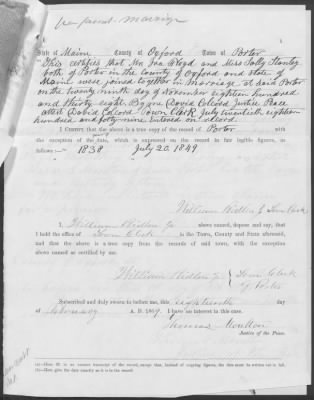 to prove marriage
State of Maine County of Oxford Town of Porter
"This certifies that Mr Ira Floyd and Mrs Sally Stanley
both of Porter in the County of Oxford and State of
Maine were joined together in marriage at said Porter
on the twenty ninth day of November eighteen hundred
and thirty eight. By me David Colcord Justice Peace
attest David Colcord Town Clerk July twentieth eighteen
hundred and forty nine entered on record
I CERTIFY that the above is a true copy of the record of Porter with
the exception of the date, which is expressed on the record in fair legible figures, as
follows:— 1838 July 20. 1849
William Ridlon Jr Town Clerk
I, William Ridlon Jr above named, depose and say, that
I hold the office of Town Clerk in the Town, County and State aforesaid,
and that the above is a true copy from the records of said town, with the exception
above named as certified by me.
William Ridlon Jr Town Clerk
of Porter
Subscribed and duly sworn to before me, this eighteenth day
of February A. D. 1869. I have no interest in this case.
Thomas Moulton
Justice of the Peace.